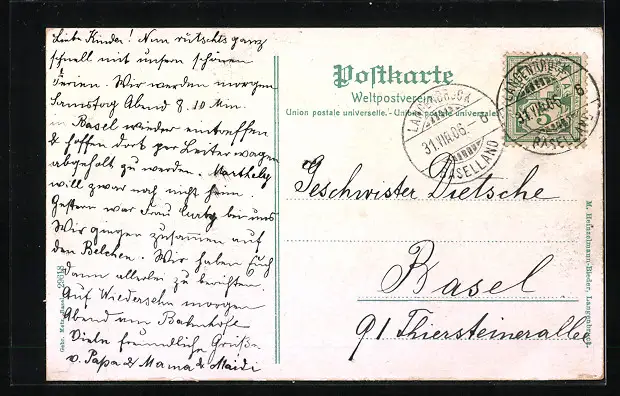 Liebe Kinder! Nun rütschts ganz
schnell mit unsern schönen
Ferien. Wir werden morgen
Samstag Abend 8.10 Min.
in Basel wieder eintreffen
& hoffen dort per Leiterwagen
abgeholt zu werden. Marthely
will zwar noch nicht heim
Gestern war Frau bei uns
Wir giengen zusammen auf
den Belchen. Wir haben Euch
dann allerlei zu berichten.
Auf Wiedersehn morgen
Abend am Bahnhofe
Viele freundliche Grüße
v. Papa & Mama & Maidi
Postkarte
Weltpostverein
Union postale universelle. - Unione postale universale
LANGENBRUCK
31.VIII.06. 8
BASELLAND
LANGENBRUCK
31.VIII.06. 8
BASELLAND
5
Geschwister Dietsche
Basel
91 Thiersteinerallee
Gebr. Metz, Basel
M. Heinzelmann-Rieder, Langenbruck